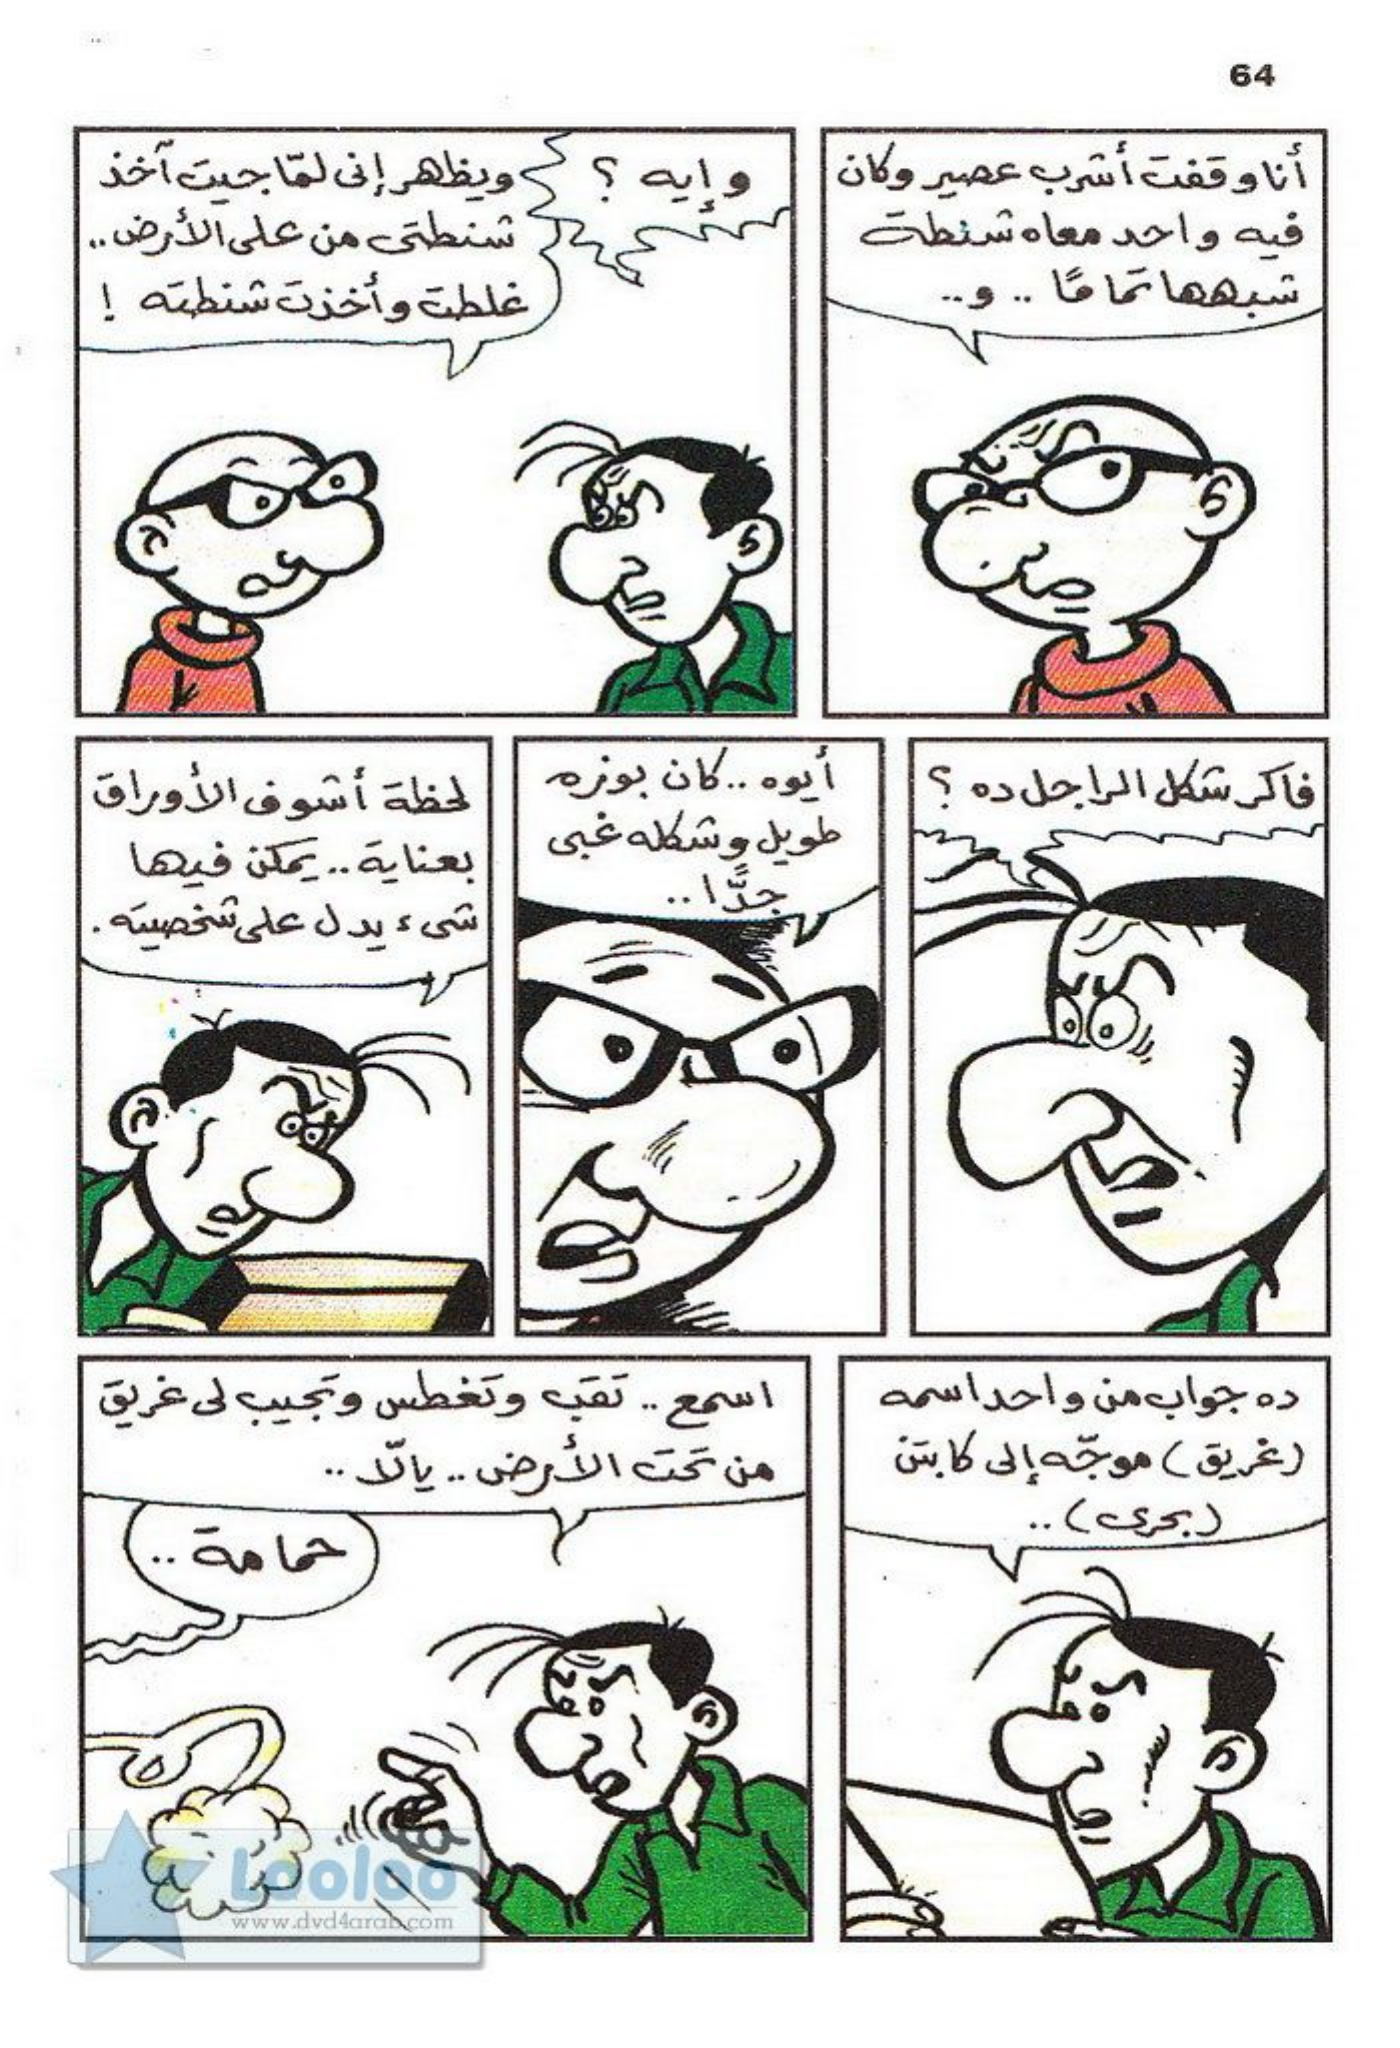 64
أنا وقفت أشرب عصير وكان
فيه واحد معاه شنطة
شبهها تمامًا .. و..
وإيه ؟
ويظهر إنى لمّا جيت آخذ
شنطتى من على الأرض..
غلطت وأخذت شنطته !
فاكر شكل الراجل ده ؟
أيوه ..كان بوزه
طويل وشكله غبى
جدًّا ..
لحظة أشوف الأوراق
بعناية .. يمكن فيها
شىء يدل على شخصيته .
ده جواب من واحد اسمه
(غريق) موجّه إلى كابتن
(بحرى) ..
اسمع .. تقب وتغطس وتجيب لى غريق
من تحت الأرض .. يالّا ..
حمامة ..
Looloo
www.dvd4arab.com